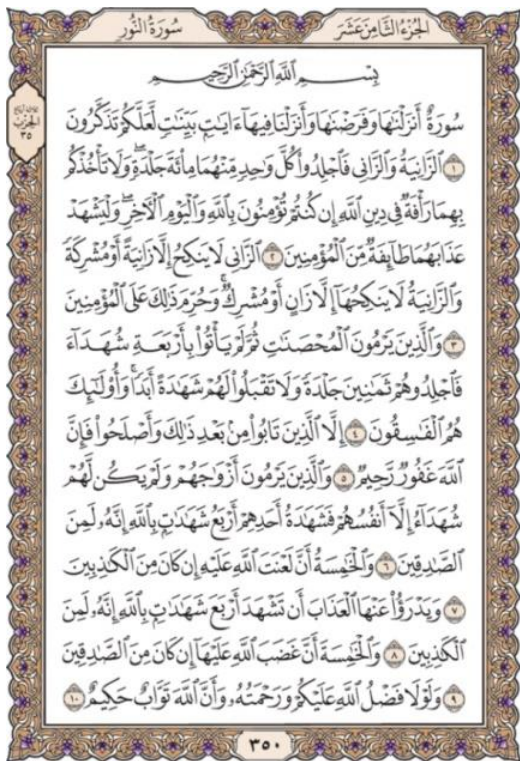 الجُزْءُ الثَّامِنَ عَشَرَ
سُورَةُ النُّورِ
الحِزْب
٣٥
بِسْمِ ٱللَّهِ ٱلرَّحْمَٰنِ ٱلرَّحِيمِ
سُورَةٌ أَنزَلْنَٰهَا وَفَرَضْنَٰهَا وَأَنزَلْنَا فِيهَآ ءَايَٰتٍۭ بَيِّنَٰتٍ لَّعَلَّكُمْ تَذَكَّرُونَ
١ ٱلزَّانِيَةُ وَٱلزَّانِى فَٱجْلِدُوا۟ كُلَّ وَٰحِدٍ مِّنْهُمَا مِا۟ئَةَ جَلْدَةٍ ۖ وَلَا تَأْخُذْكُم
بِهِمَا رَأْفَةٌ فِى دِينِ ٱللَّهِ إِن كُنتُمْ تُؤْمِنُونَ بِٱللَّهِ وَٱلْيَوْمِ ٱلْءَاخِرِ ۖ وَلْيَشْهَدْ
عَذَابَهُمَا طَآئِفَةٌ مِّنَ ٱلْمُؤْمِنِينَ ٢ ٱلزَّانِى لَا يَنكِحُ إِلَّا زَانِيَةً أَوْ مُشْرِكَةً
وَٱلزَّانِيَةُ لَا يَنكِحُهَآ إِلَّا زَانٍ أَوْ مُشْرِكٌ ۚ وَحُرِّمَ ذَٰلِكَ عَلَى ٱلْمُؤْمِنِينَ
٣ وَٱلَّذِينَ يَرْمُونَ ٱلْمُحْصَنَٰتِ ثُمَّ لَمْ يَأْتُوا۟ بِأَرْبَعَةِ شُهَدَآءَ
فَٱجْلِدُوهُمْ ثَمَٰنِينَ جَلْدَةً وَلَا تَقْبَلُوا۟ لَهُمْ شَهَٰدَةً أَبَدًا ۚ وَأُو۟لَٰٓئِكَ
هُمُ ٱلْفَٰسِقُونَ ٤ إِلَّا ٱلَّذِينَ تَابُوا۟ مِنۢ بَعْدِ ذَٰلِكَ وَأَصْلَحُوا۟ فَإِنَّ
ٱللَّهَ غَفُورٌ رَّحِيمٌ ٥ وَٱلَّذِينَ يَرْمُونَ أَزْوَٰجَهُمْ وَلَمْ يَكُن لَّهُمْ
شُهَدَآءُ إِلَّآ أَنفُسُهُمْ فَشَهَٰدَةُ أَحَدِهِمْ أَرْبَعُ شَهَٰدَٰتٍۭ بِٱللَّهِ إِنَّهُۥ لَمِنَ
ٱلصَّٰدِقِينَ ٦ وَٱلْخَٰمِسَةُ أَنَّ لَعْنَتَ ٱللَّهِ عَلَيْهِ إِن كَانَ مِنَ ٱلْكَٰذِبِينَ
٧ وَيَدْرَؤُا۟ عَنْهَا ٱلْعَذَابَ أَن تَشْهَدَ أَرْبَعَ شَهَٰدَٰتٍۭ بِٱللَّهِ إِنَّهُۥ لَمِنَ
ٱلْكَٰذِبِينَ ٨ وَٱلْخَٰمِسَةَ أَنَّ غَضَبَ ٱللَّهِ عَلَيْهَآ إِن كَانَ مِنَ ٱلصَّٰدِقِينَ
٩ وَلَوْلَا فَضْلُ ٱللَّهِ عَلَيْكُمْ وَرَحْمَتُهُۥ وَأَنَّ ٱللَّهَ تَوَّابٌ حَكِيمٌ ١٠
٣٥٠